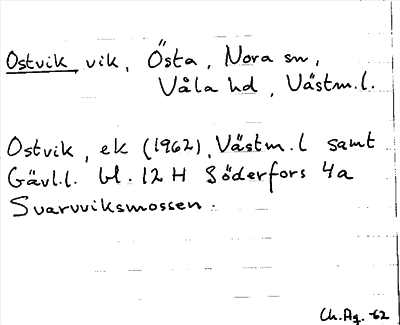 Ostvik, vik, Östa, Nora sn,
Våla hd, Västm.l.
Ostvik, ek (1962), Västm.l samt
Gävl.l. bl. 12 H Söderfors 4a
Svarvviksmossen.
Ch.Ag. -62